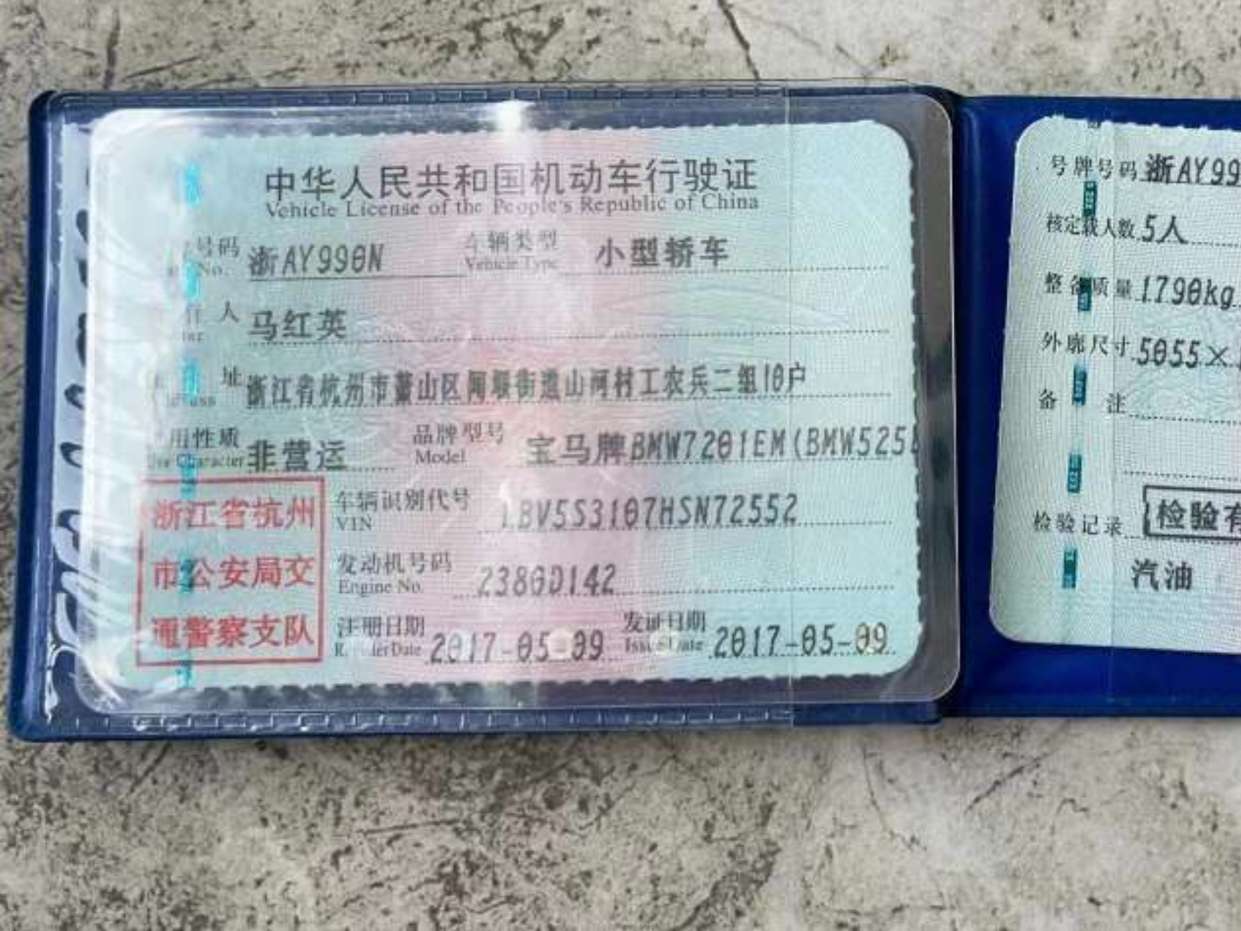 中华人民共和国机动车行驶证
Vehicle License of the People's Republic of China
号码 浙AY990N 车辆类型 小型轿车
No. Vehicle Type
人 马红英
址 浙江省杭州市萧山区闻堰街道山河村工农兵二组10户
用性质 非营运 品牌型号 宝马牌BMW7201EM(BMW525L
Character Model
浙江省杭州
市公安局交
通警察支队
车辆识别代号 LBV5S3107HSN72552
VIN
发动机号码 2380D142
Engine No.
注册日期 2017-05-09 发证日期 2017-05-09
Issue Date
号牌号码 浙AY99
核定载人数 5人
整备质量 1790kg
外廓尺寸 5055×
备 注
检验记录 检验有
汽油